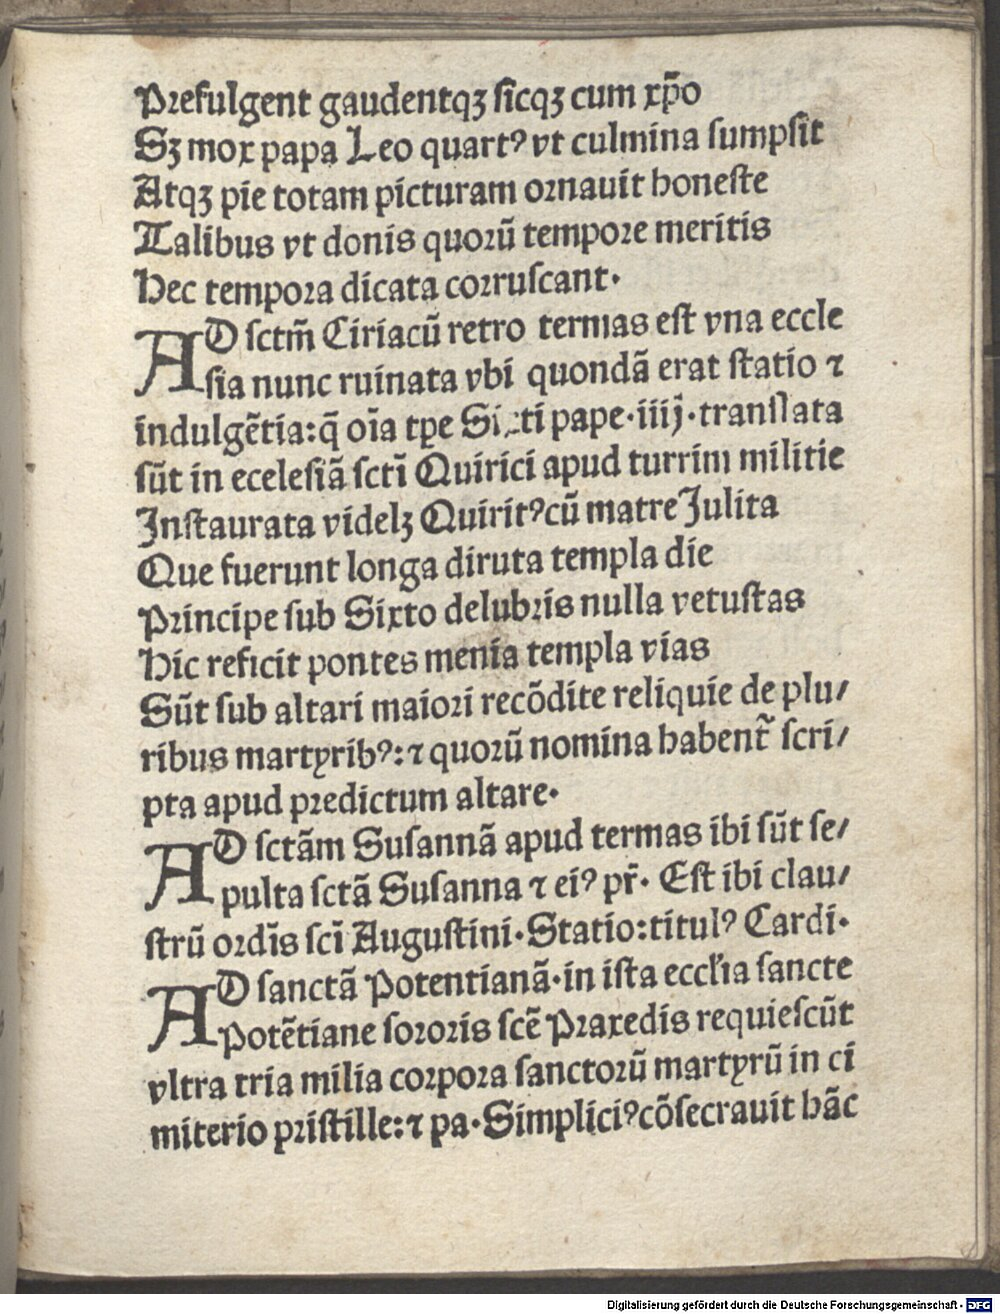 Prefulgent gaudentqꝫ sicqꝫ cum xp̄o
Sꝫ mox papa Leo quartꝰ vt culmina sumpsit
Atqꝫ pie totam picturam ornauit honeste
Talibus vt donis quorū tempore meritis
Hec tempora dicata corruscant·
AD sctm̄ Ciriacū retro termas est vna eccle
sia nunc ruinata vbi quondā erat statio ⁊
indulgētia:q̄ oīa tꝑe Sixti pape·iiij·translata
sūt in ecelesiā sctī Quirici apud turrim militie
Instaurata videlꝫ Quiritꝰcū matre Julita
Que fuerunt longa diruta templa die
Principe sub Sixto delubris nulla vetustas
Hic reficit pontes menia templa vias
Sūt sub altari maiori recōdite reliquie de plu/
ribus martyribꝰ:⁊ quorū nomina habent̄ scri/
pta apud predictum altare·
AD sctām Susannā apud termas ibi sūt se/
pulta sctā Susanna ⁊ eiꝰ pr̄· Est ibi clau/
strū ordīs scī Augustini·Statio:titulꝰ Cardi·
AD sanctā Potentianā·in ista eccľia sancte
Potētiane sororis scē Praxedis requiescūt
vltra tria milia corpora sanctorū martyrū in ci
miterio pristille:⁊ pa·Simpliciꝰcōsecrauit hāc
Digitalisierung gefördert durch die Deutsche Forschungsgemeinschaft - DFG